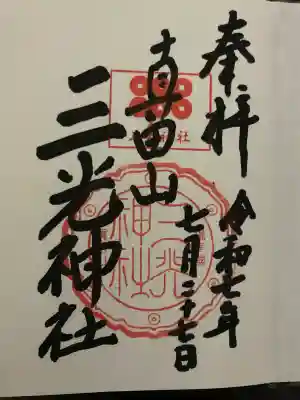 奉拝
令和七年
七月二十七日
真田山
三光神社
三光
神社